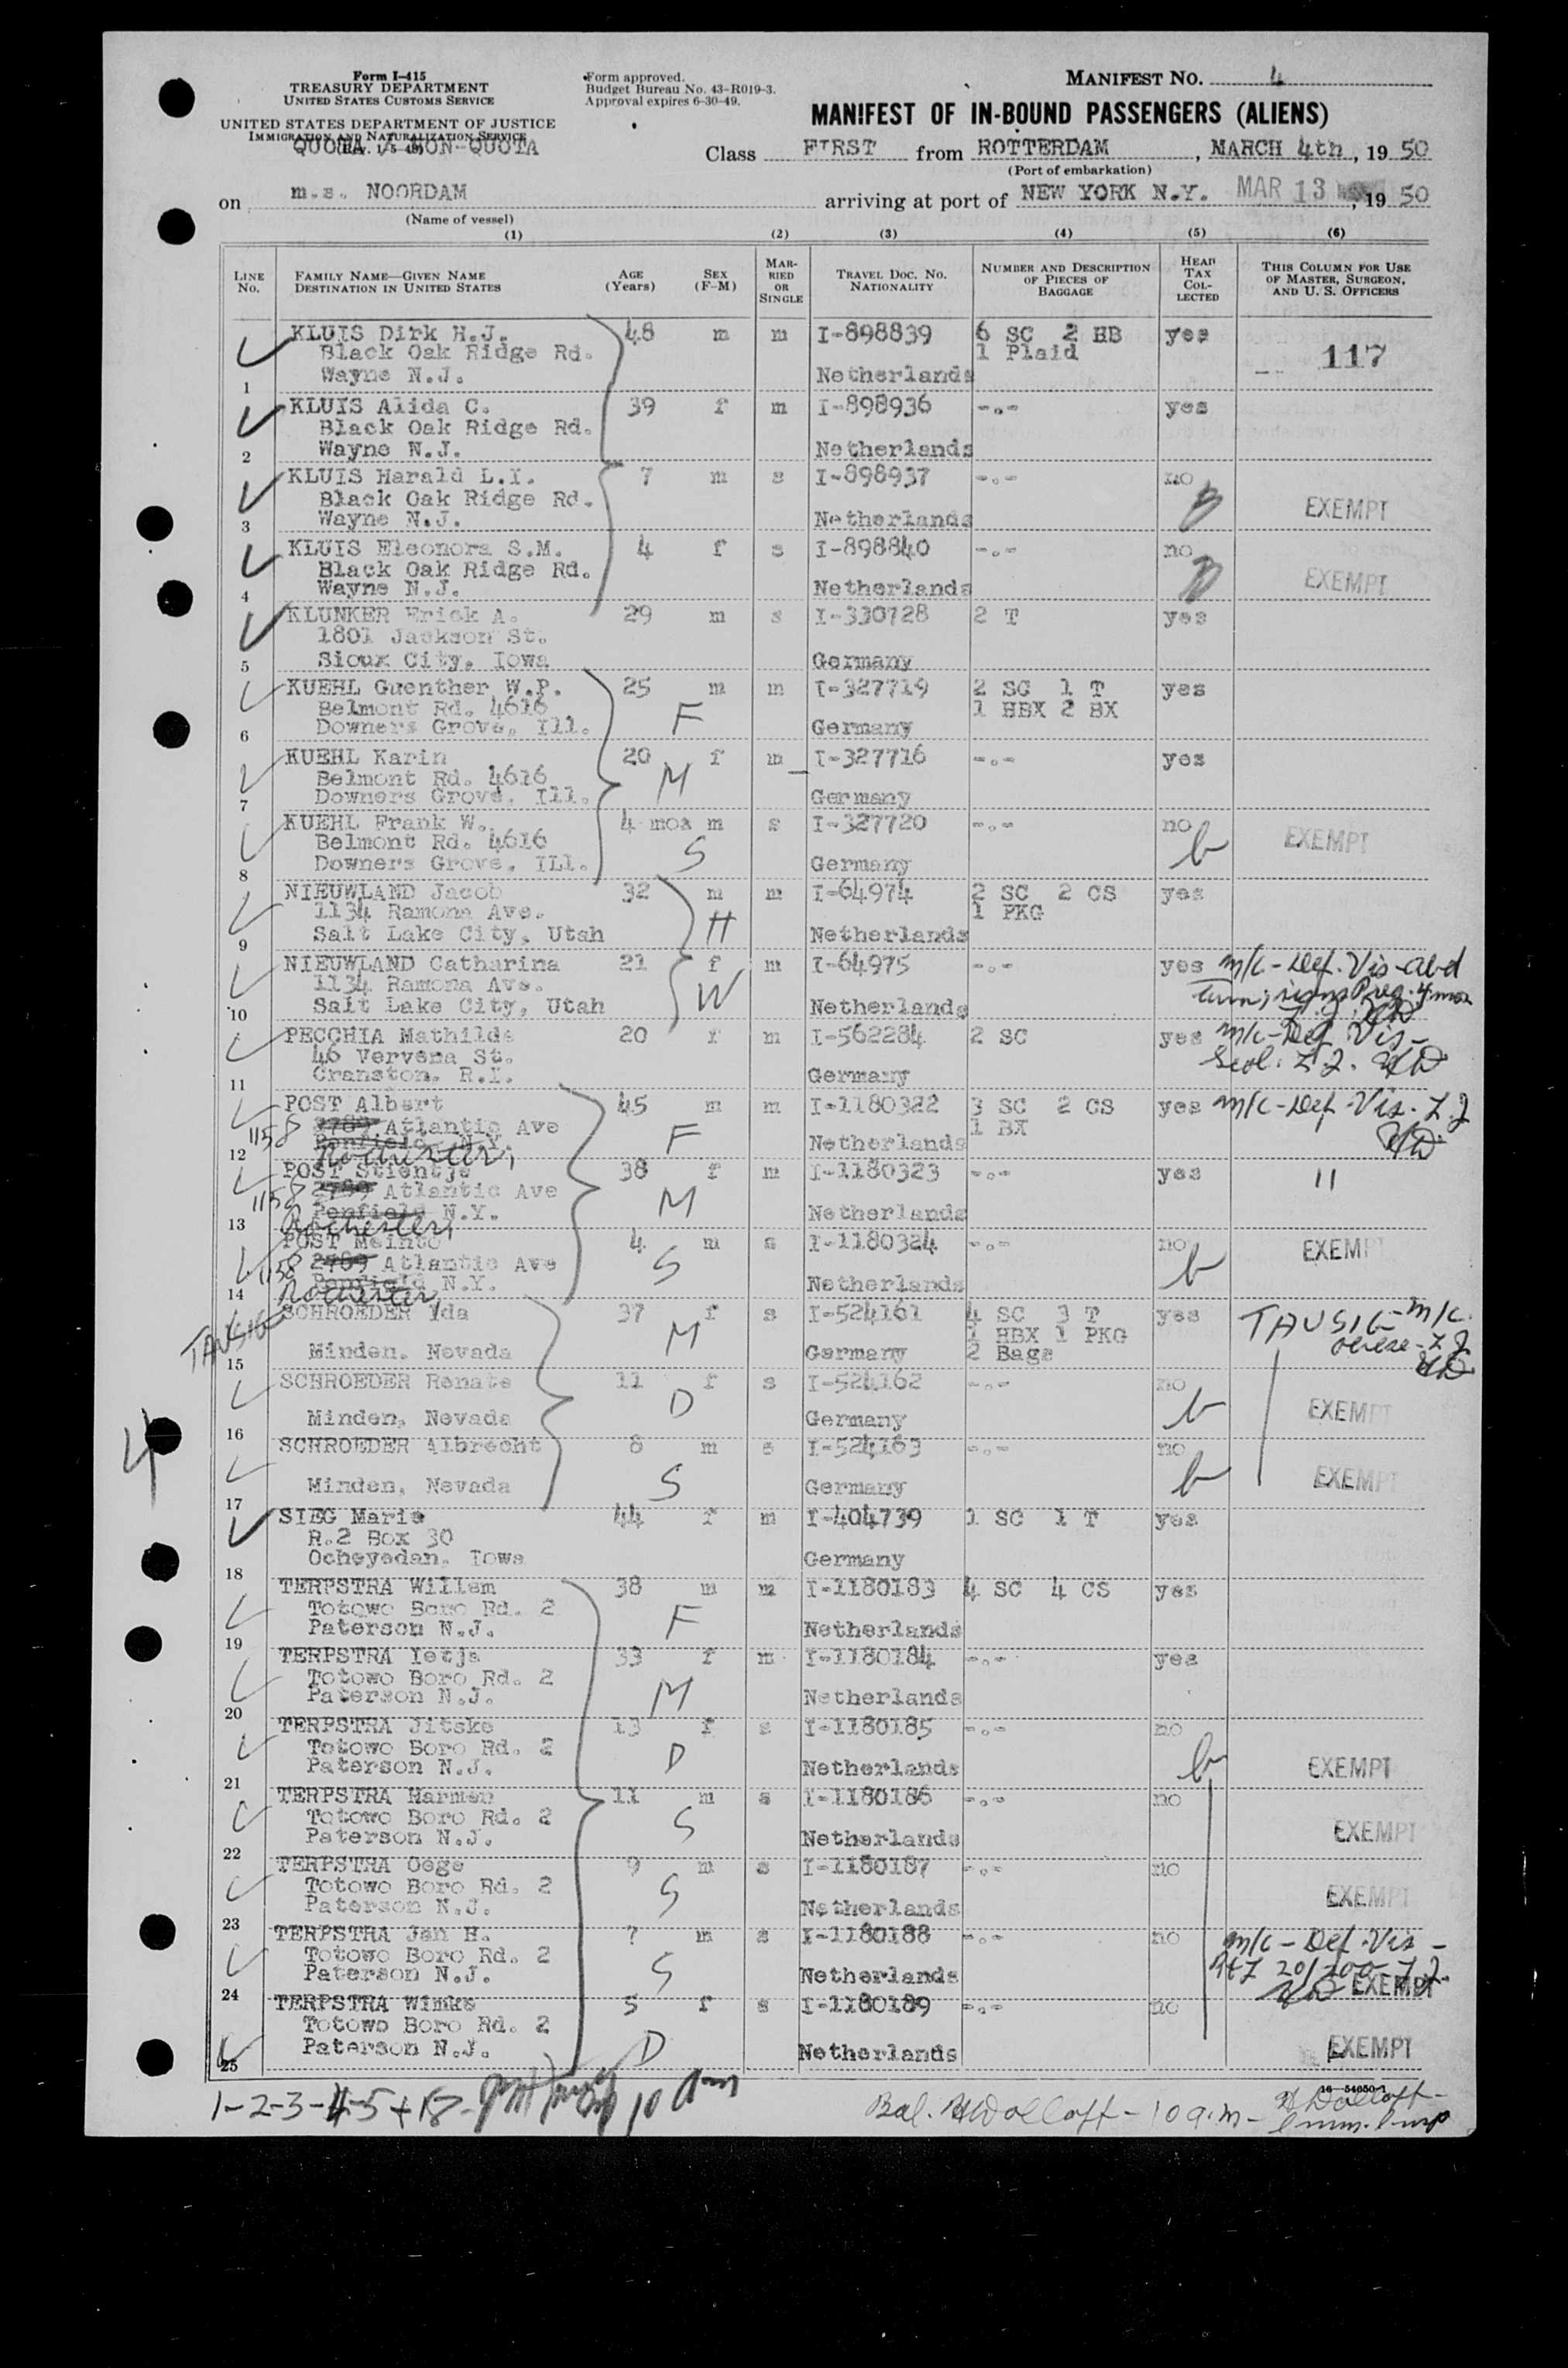 Form I-415
TREASURY DEPARTMENT
UNITED STATES CUSTOMS SERVICE
UNITED STATES DEPARTMENT OF JUSTICE
IMMIGRATION AND NATURALIZATION SERVICE
QUOTA / NON-QUOTA
Form approved.
Budget Bureau No. 43-R019-3.
Approval expires 6-30-49.
MANIFEST NO. 4
MANIFEST OF IN-BOUND PASSENGERS (ALIENS)
Class FIRST from ROTTERDAM, MARCH 4th, 19 50
(Port of embarkation)
on m.s. NOORDAM arriving at port of NEW YORK N.Y. MAR 13, 19 50
(Name of vessel)
(1) (2) (3) (4) (5) (6)
LINE NO. FAMILY NAME—GIVEN NAME DESTINATION IN UNITED STATES AGE (YEARS) SEX (F-M) MARRIED OR SINGLE TRAVEL DOC. NO. NATIONALITY NUMBER AND DESCRIPTION OF PIECES OF BAGGAGE HEAD TAX COLLECTED THIS COLUMN FOR USE OF MASTER, SURGEON, AND U. S. OFFICERS
KLUIS Dirk H.J. 48 m m I-898839 6 SC 2 HB yes
Black Oak Ridge Rd. 1 Plaid 117
1 Wayne N.J. Netherlands
KLUIS Alida C. 39 f m I-898936 -.- yes
Black Oak Ridge Rd.
2 Wayne N.J. Netherlands
KLUIS Harald L.I. 7 m s I-898937 -.- no
Black Oak Ridge Rd. EXEMPT
3 Wayne N.J. Netherlands
KLUIS Eleonora S.M. 4 f s I-898840 -.- no
Black Oak Ridge Rd. EXEMPT
4 Wayne N.J. Netherlands
KLUNKER Erick A. 29 m s I-330728 2 T yes
1801 Jackson St.
5 Sioux City, Iowa Germany
KUEHL Guenther W.P. 25 m m I-327719 2 SC 1 T yes
Belmont Rd. 4616 F 1 HBX 2 BX
6 Downers Grove, Ill. Germany
KUEHL Karin 20 f m I-327716 -.- yes
Belmont Rd. 4616 M
7 Downers Grove, Ill. Germany
KUEHL Frank W. 4 mos m s I-327720 -.- no
Belmont Rd. 4616 S EXEMPT
8 Downers Grove, ILl. Germany
NIEUWLAND Jacob 32 m m I-64974 2 SC 2 CS yes
1134 Ramona Ave. H 1 PKG
9 Salt Lake City, Utah Netherlands
NIEUWLAND Catharina 21 f m I-64975 -.- yes m/c - Def. Vis - abd
1134 Ramona Ave. W
10 Salt Lake City, Utah Netherlands
PECCHIA Mathilde 20 f m I-562284 2 SC yes m/c - Def Vis -
46 Vervena St.
11 Cranston. R.I. Germany
POST Albert 45 m m I-1180322 3 SC 2 CS yes m/c - Def. Vis.
1158 2789 Atlantic Ave F 1 BX
12 Penfield N.Y. Rochester, Netherlands
POST Stientje 38 f m I-1180323 -.- yes 11
1158 2789 Atlantic Ave M
13 Penfield N.Y. Rochester, Netherlands
POST Meinto 4 m s I-1180324 -.- no EXEMPT
1158 2789 Atlantic Ave S
14 Penfield N.Y. Rochester, Netherlands
TAUSIG SCHROEDER Ida 37 f s I-524161 4 SC 3 T yes TAUSIG - m/c.
M 1 HBX 1 PKG
15 Minden, Nevada Germany 2 Bags
SCHROEDER Renate 11 f s I-524162 -.- no
D EXEMPT
16 Minden, Nevada Germany
SCHROEDER Albrecht 8 m s I-524163 -.- no
S EXEMPT
17 Minden, Nevada Germany
SIEG Marie 44 f m I-404739 1 SC 1 T yes
R.2 Box 30
18 Ocheyedan, Iowa Germany
TERPSTRA Willem 38 m m I-1180183 4 SC 4 CS yes
Totowo Boro Rd. 2 F
19 Paterson N.J. Netherlands
TERPSTRA Ietje 33 f m I-1180184 -.- yes
Totowo Boro Rd. 2 M
20 Paterson N.J. Netherlands
TERPSTRA Jitske 13 f s I-1180185 -.- no
Totowo Boro Rd. 2 D EXEMPT
21 Paterson N.J. Netherlands
TERPSTRA Harmen 11 m s I-1180186 -.- no
Totowo Boro Rd. 2 S EXEMPT
22 Paterson N.J. Netherlands
TERPSTRA Oege 9 m s I-1180187 -.- no
Totowo Boro Rd. 2 S EXEMPT
23 Paterson N.J. Netherlands
TERPSTRA Jan H. 7 m s I-1180188 -.- no m/c - Def. Vis -
Totowo Boro Rd. 2 S 20/200
24 Paterson N.J. Netherlands EXEMPT
TERPSTRA Wimke 5 f s I-1180189 -.- no
Totowo Boro Rd. 2 D EXEMPT
25 Paterson N.J. Netherlands
16—54050-1
1-2-3-4-5+18- 10 am
Bal. HWDolloff - 10 a.m - HWDolloff -
Imm. Insp